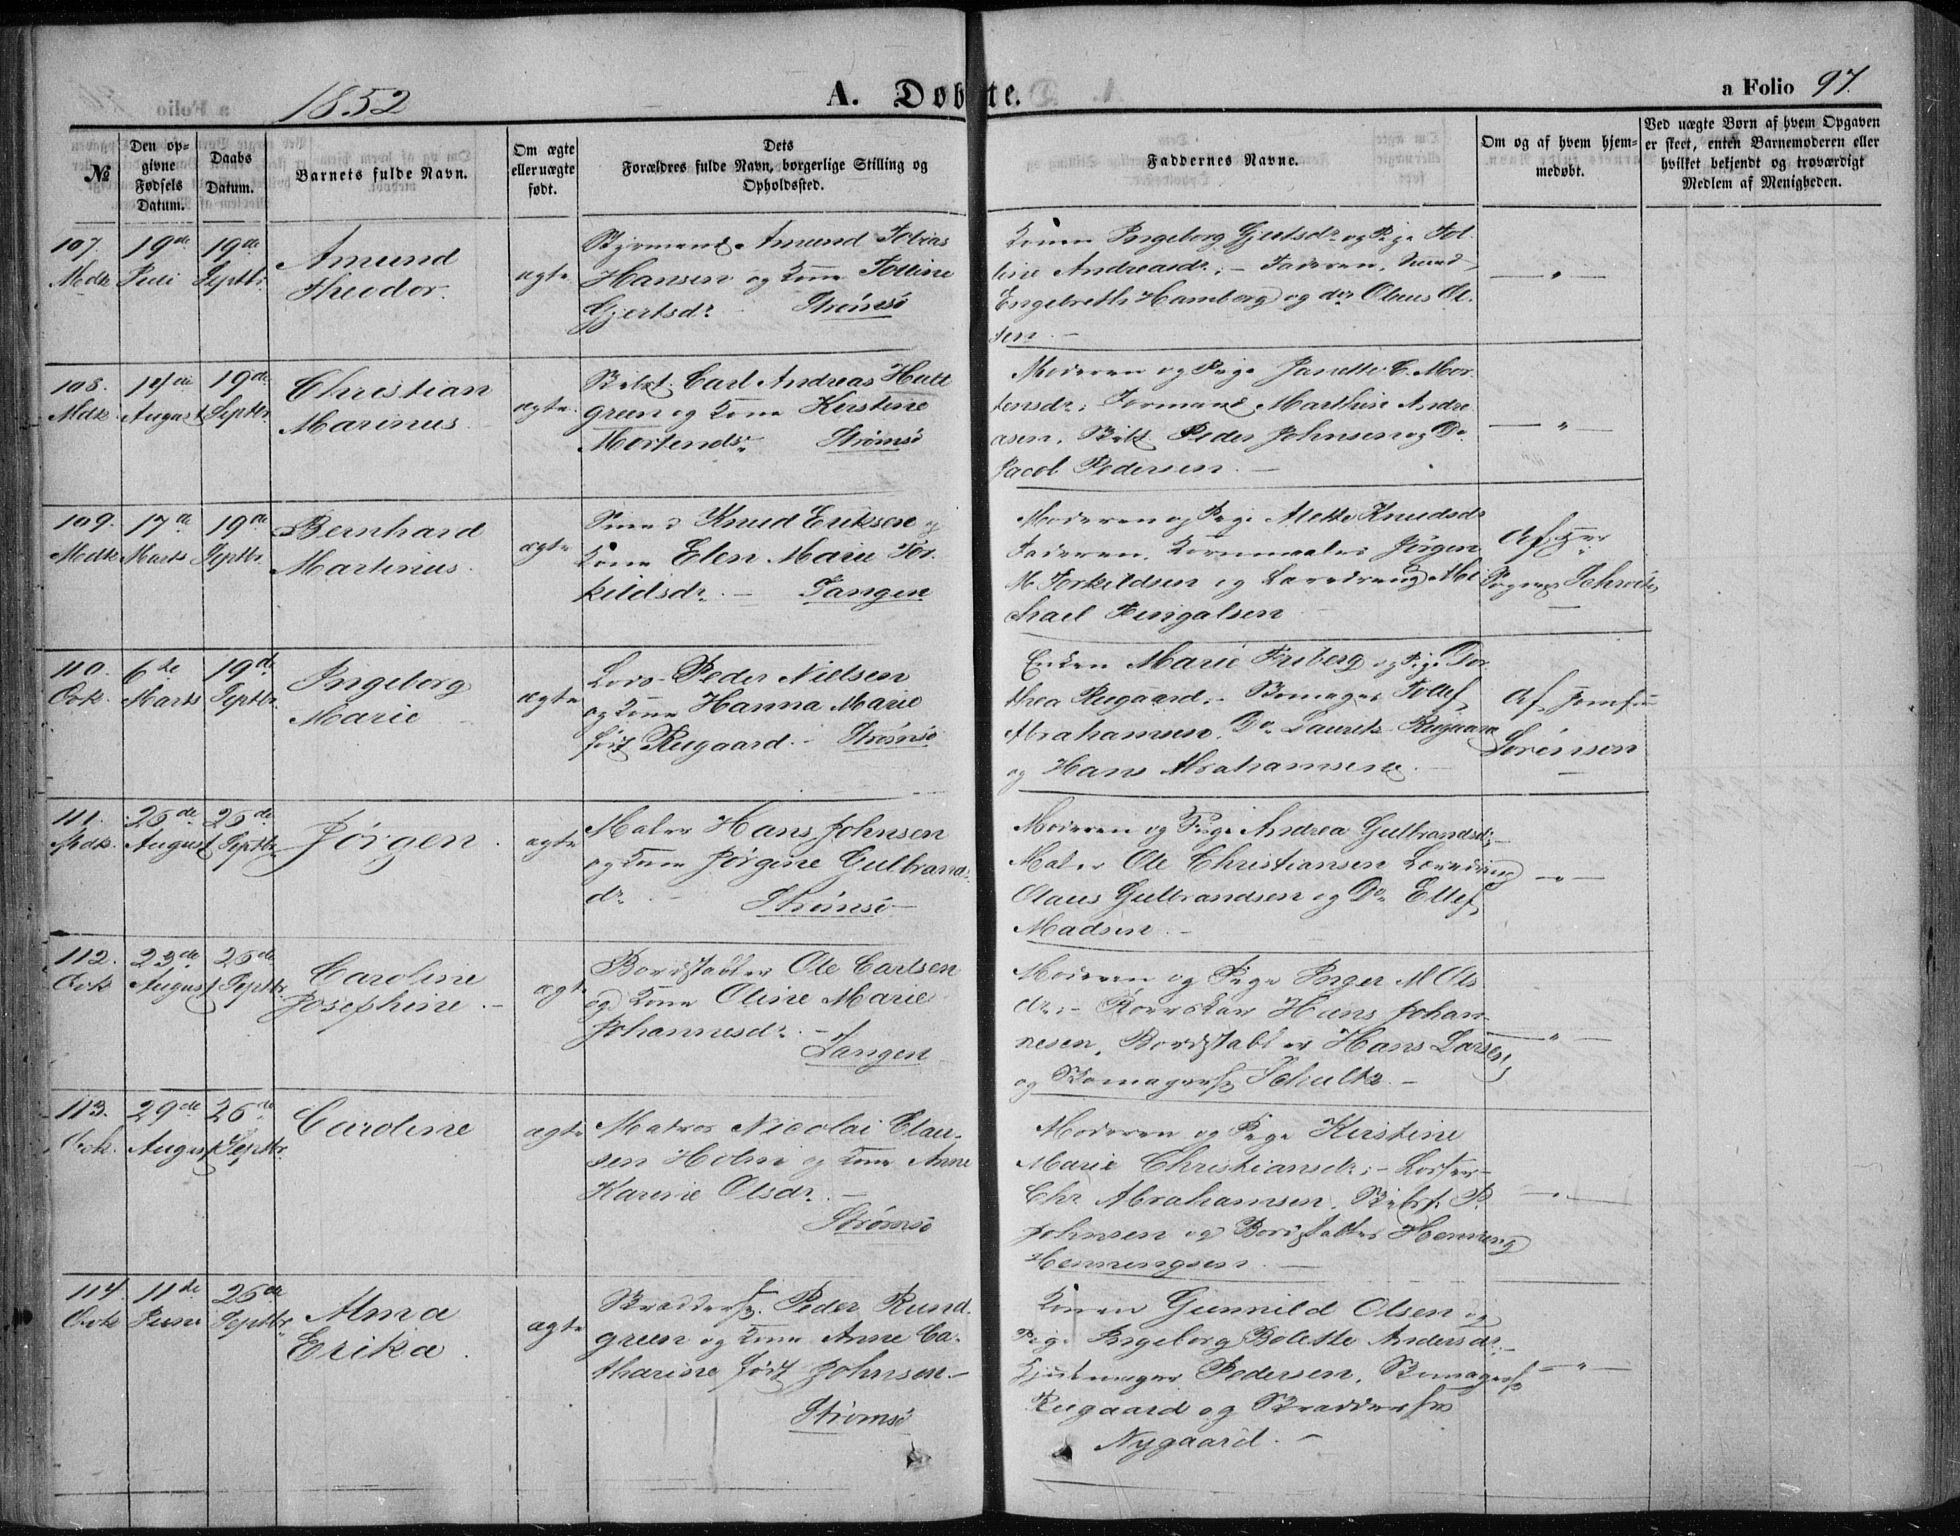 1852
A. Døbte.
a Folio 97.
№
Den op-
givne
Fødsels
Datum.
Daabs
Datum.
Barnets fulde Navn.
Om ægte
eller uægte
født.
Dets
Forældres fulde Navn, borgerlige Stilling og
Opholdssted.
Faddernes Navne.
Om og af hvem hjem-
medøbt.
Ved uægte Børn af hvem Opgaven
er skeet, enten Barnemoderen eller
hvilket bekjendt og troværdigt
Medlem af Menigheden.
107.
Mdk
19de
Juli
19de
Septbr.
Amund
Theodor.
ægte
Styrmand Amund Tobias
Hansen og Kone Talline
Gjertsdr. Strømsø
Konen Ingeborg Gjertsdr og Pige Tol-
line Andreasdr; - Faderen,
Engebreth Hamborg og do Olaus Ol-
sen. -
— " —
108.
Mdk
14de
August
19de
Septbr.
Christian
Marinus.
ægte
Carl Andreas Hall
green og Kone Kirstine
Mortensdr. Strømsø
Moderen og Pige Janette C. Mor-
tensdr; Formand Marthin Andre
asen, Peder Johnsen og Do
Jacob Pedersen. -
— " —
109.
Mdk
17de
Marts
19de
Septbr.
Bernhard
Martinus.
ægte
Knud Eriksen og
Kone Elen Marie Tor
kildsdr. — Tangen
Moderen og Pige Alette Knudsdr
Faderen, Jørgen
M. Torkildsen og Mi
chael Fingalsen
Af Hr
110.
Qvk.
6te
Marts
19de
Septbr.
Ingeborg
Marie
ægte
Lods Peder Nielsen
og Kone Hanna Marie
født Rugaard. - Strømsø
Enken Marie Friberg og Pige Do
thea Rugaard, - Skomager Tollef
Abrahamsen, Do Lauritz Rugaard
og Hans Abrahamsen. -
Af Jomfru
Sørensen
—
111.
Mdk.
26de
August
26de
Septbr.
Jørgen
ægte
Maler Hans Johnsen
og Kone Jørgine Gulbrands
dr. - Strømsø
Moderen og Pige Andrea Gulbrandsd;
Maler Ole Christiansen Læredreng
Olaus Gulbrandsen og Do Ellef
Madsen. -
— " —
112.
Qvk
23de
August
26de
Septbr.
Caroline
Josephine. -
ægte
Bordstabler Ole Carlsen
og Kone Oline Marie
Johannesdr. -
Tangen
Moderen og Pige Inger M Ols
dr; - Hans Johan-
nesen, Bordstabler Hans Larsen,
og Skomagersv Schultz. -
— " —
113.
Qvk.
29de
August
26de
Septbr.
Caroline
ægte
Matros Nicolai Clau-
sen Holm og Kone Anne
Karine Olsdr. -
Strømsø
Moderen og Pige Kirstine
Marie Christiansdr; -
Chr Abrahamsen, P.
Johnsen og Bordstabler Henning
Henningsen. -
— " —
114.
Qvk
11te
Juni
26de
Septbr.
Alma
Erika.
ægte
Skræddersv. Peder Rund
green og Kone Anne Ca-
tharine født Johnsen. -
Strømsø
Konen Gunnild Olsen og
Pige Ingeborg Bolette Andersdr. -
Pedersen, Skomagersv
Rugaard og Skræddersv
Nygaard. -
— " —